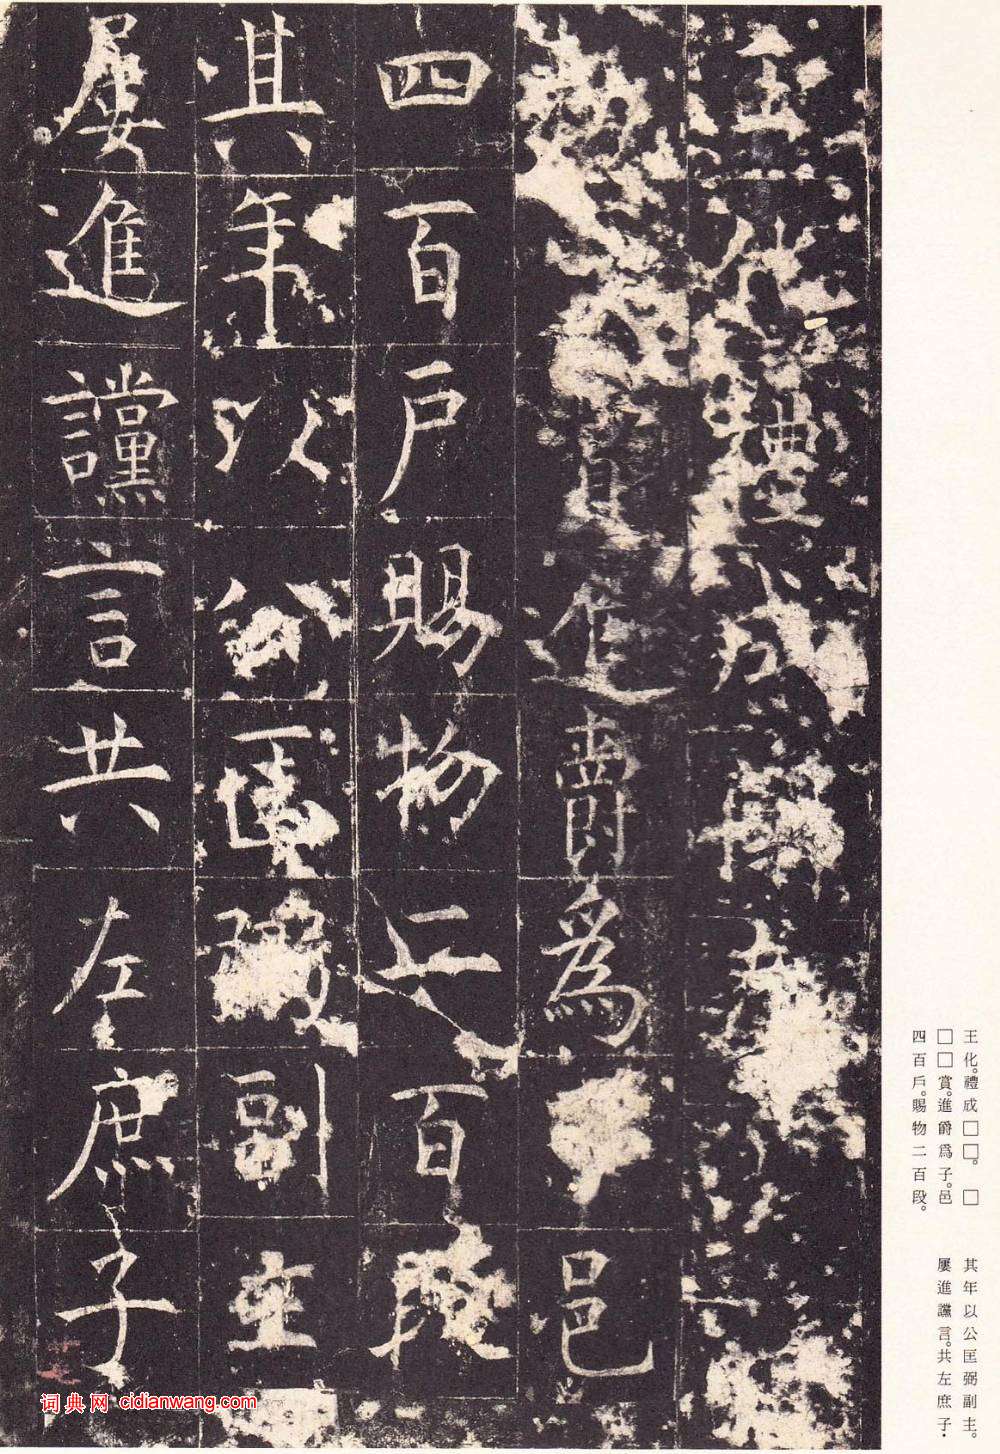 王化禮成
賞進爵為子邑
四百戶賜物二百段
其年以公匡弼副主
屢進讜言共左庶子
王化。禮成□□。□
□□賞。進爵爲子。邑
四百戶。賜物二百段。
其年以公匡弼副主。
屢進讜言。共左庶子·
词典网 cidianwang.com